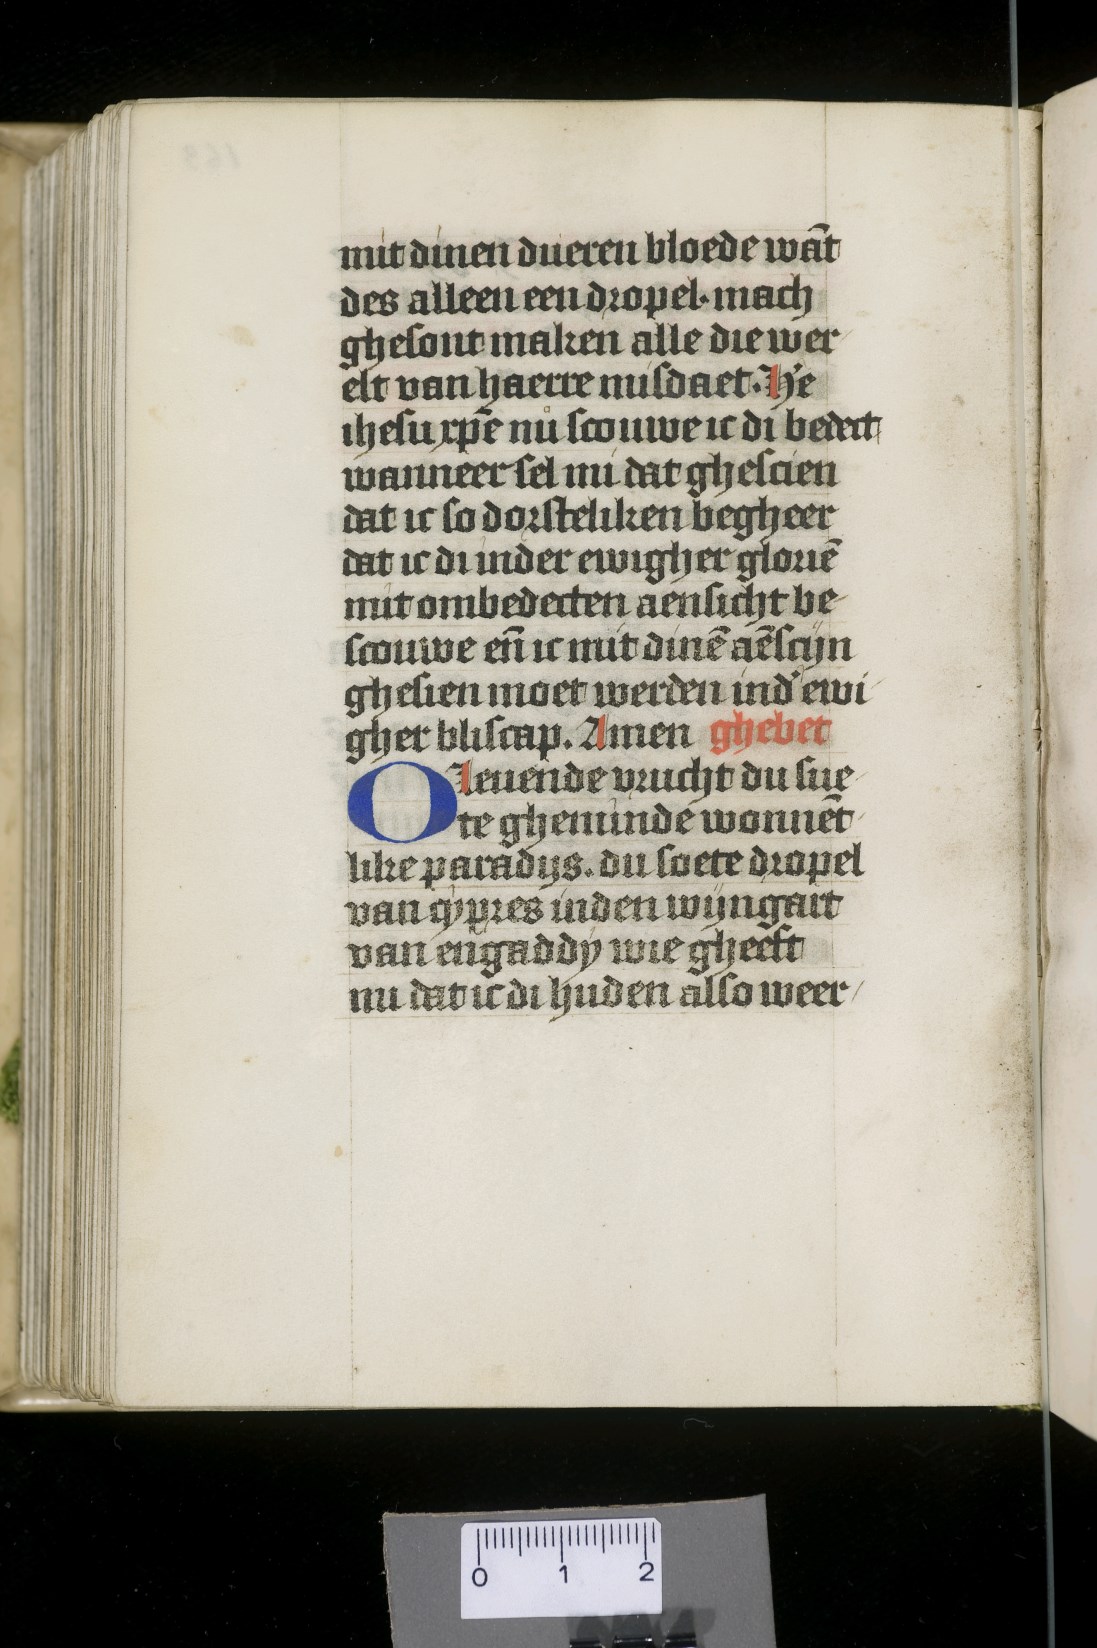 mit dinen dueren bloede wāt
des alleen een dropel· mach
ghesont maken alle die wer
elt van haerre misdaet. H'e
ihesu xp̄e nu scouwe ic di bedect
wanneer sel mi dat ghescien
dat ic so dorsteliken begheer
dat ic di inder ewigher gloriē
mit ombedecten aensicht be
scouwe eñ ic mit dinē aēscijn
ghesien moet werden ind' ewi
gher bliscap. Amen ghebet
O leuende vrucht du sue
te gheminde wonnēt
like paradijs. du soete dropel
van cypres inden wijngart
van engaddy wie gheeft
mi dat ic di huden also weer
0 1 2